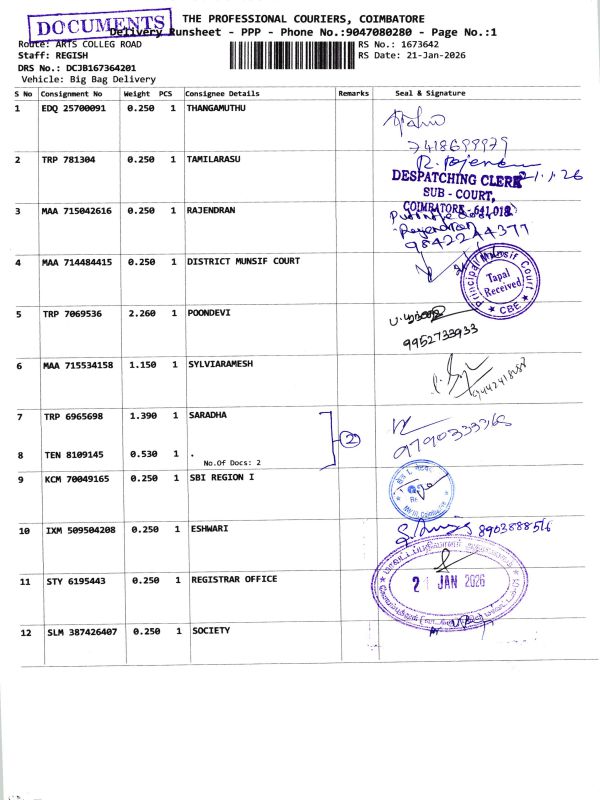 DOCUMENTS
THE PROFESSIONAL COURIERS, COIMBATORE
Delivery Runsheet - PPP - Phone No.:9047080280 - Page No.:1
Route: ARTS COLLEG ROAD
RS No.: 1673642
Staff: REGISH
RS Date: 21-Jan-2026
DRS No.: DCJB167364201
Vehicle: Big Bag Delivery
S No Consignment No Weight PCS Consignee Details Remarks Seal & Signature
1 EDQ 25700091 0.250 1 THANGAMUTHU
7418699979
2 TRP 781304 0.250 1 TAMILARASU
DESPATCHING CLERK 21.1.26
SUB - COURT,
COIMBATORE - 641 018
3 MAA 715042616 0.250 1 RAJENDRAN
Rajendran
9842244377
4 MAA 714484415 0.250 1 DISTRICT MUNSIF COURT
Principal Munsif Court
Tapal
Received
★ CBE ★
5 TRP 7069536 2.260 1 POONDEVI
9952733933
6 MAA 715534158 1.150 1 SYLVIARAMESH
7 TRP 6965698 1.390 1 SARADHA
2
9790333368
8 TEN 8109145 0.530 1 .
No.Of Docs: 2
9 KCM 70049165 0.250 1 SBI REGION I
10 IXM 509504208 0.250 1 ESHWARI
8903888516
11 STY 6195443 0.250 1 REGISTRAR OFFICE
21 JAN 2026
12 SLM 387426407 0.250 1 SOCIETY